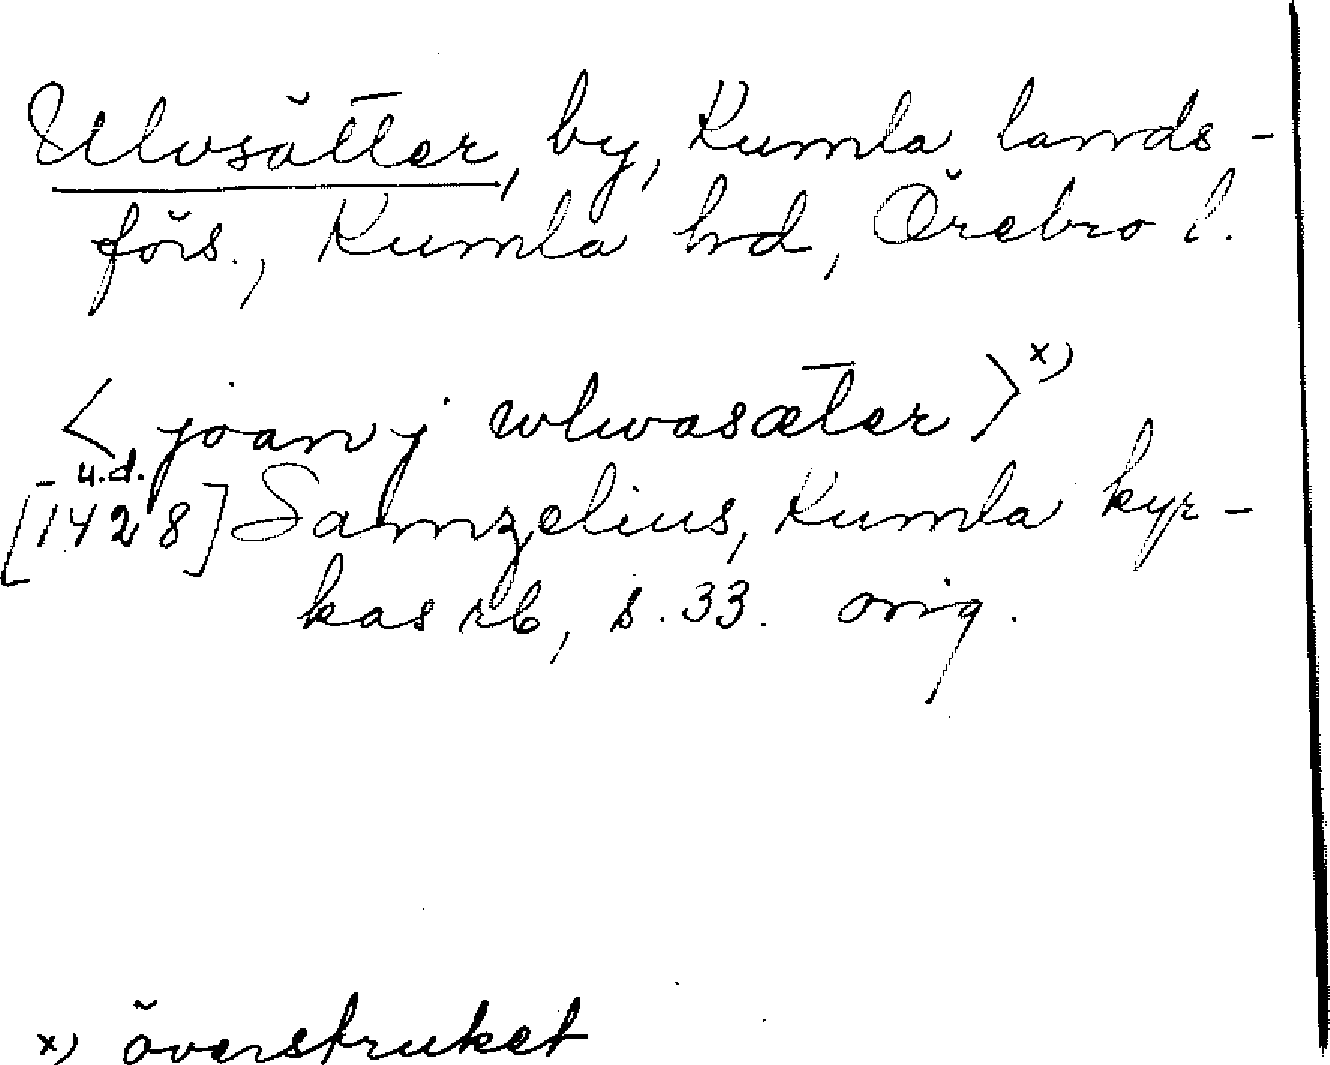 Ulvsätter, by, Kumla lands-
förs., Kumla hrd, Örebro l.
< joan j wlwasæter >x)
u.d.
[1428] Samzelius, Kumla kyr-
kas rb, s. 33. orig.
x) överstruket